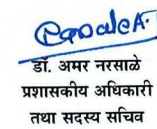 डॉ. अमर नरसाळे
प्रशासकीय अधिकारी
तथा सदस्य सचिव